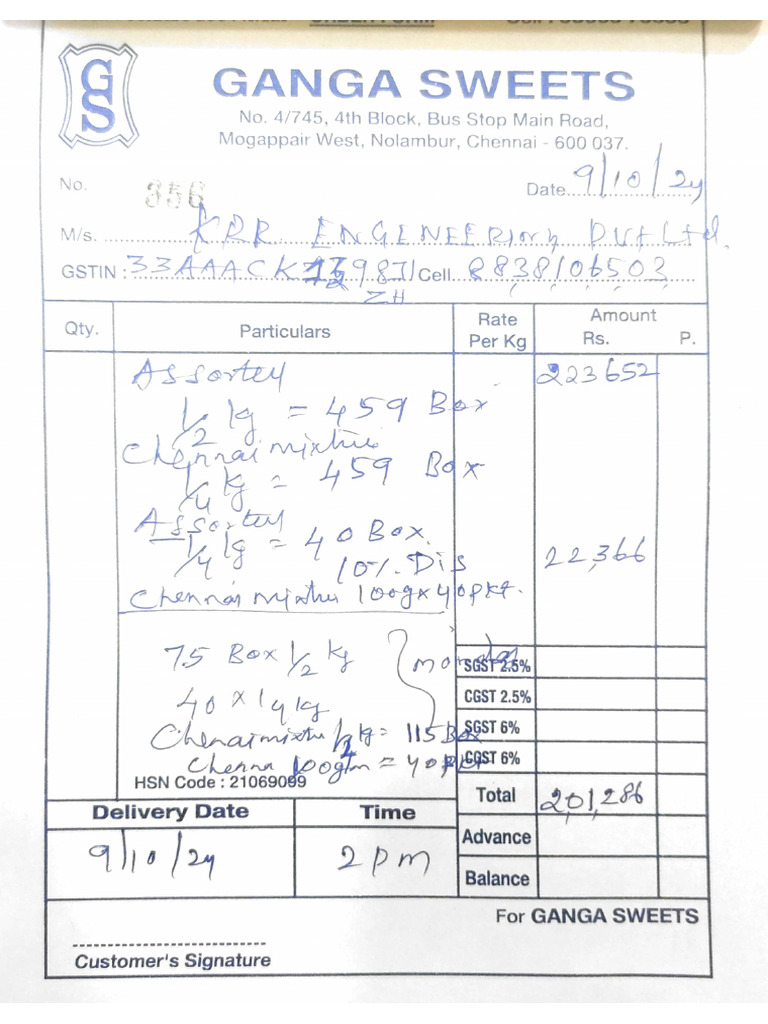 ORDER FORM
GS
GANGA SWEETS
No. 4/745, 4th Block, Bus Stop Main Road,
Mogappair West, Nolambur, Chennai - 600 037.
No. 356
Date 9/10/24
M/s. KRR ENGENEERIng Pvt Ltd.
GSTIN : 33AAACK 987 Cell. 8838106503
ZH
Qty. Particulars Rate Per Kg Amount Rs. P.
Assorted 223652
1/2 kg = 459 Box
Chennai mixture
1/4 kg = 459 Box
Assorted
1/4 kg = 40 Box.
10% Dis 22,366
Chennai mixture 100g x 40pkt.
75 Box 1/2 kg
40 x 1/4 kg
monday
Chenai mixture 1/2 kg = 115 Box
Chenna 100gm = 40 pkt
SGST 2.5%
CGST 2.5%
SGST 6%
CGST 6%
HSN Code : 21069099
Total 2,01,286
Delivery Date Time
Advance
9/10/24 2 pm
Balance
For GANGA SWEETS
Customer's Signature